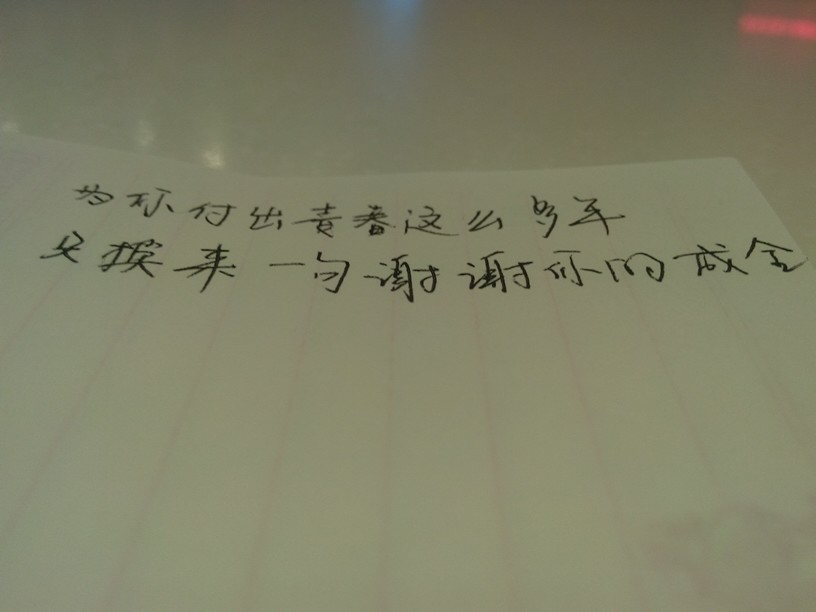 为你付出青春这么多年
又换来一句谢谢你的成全